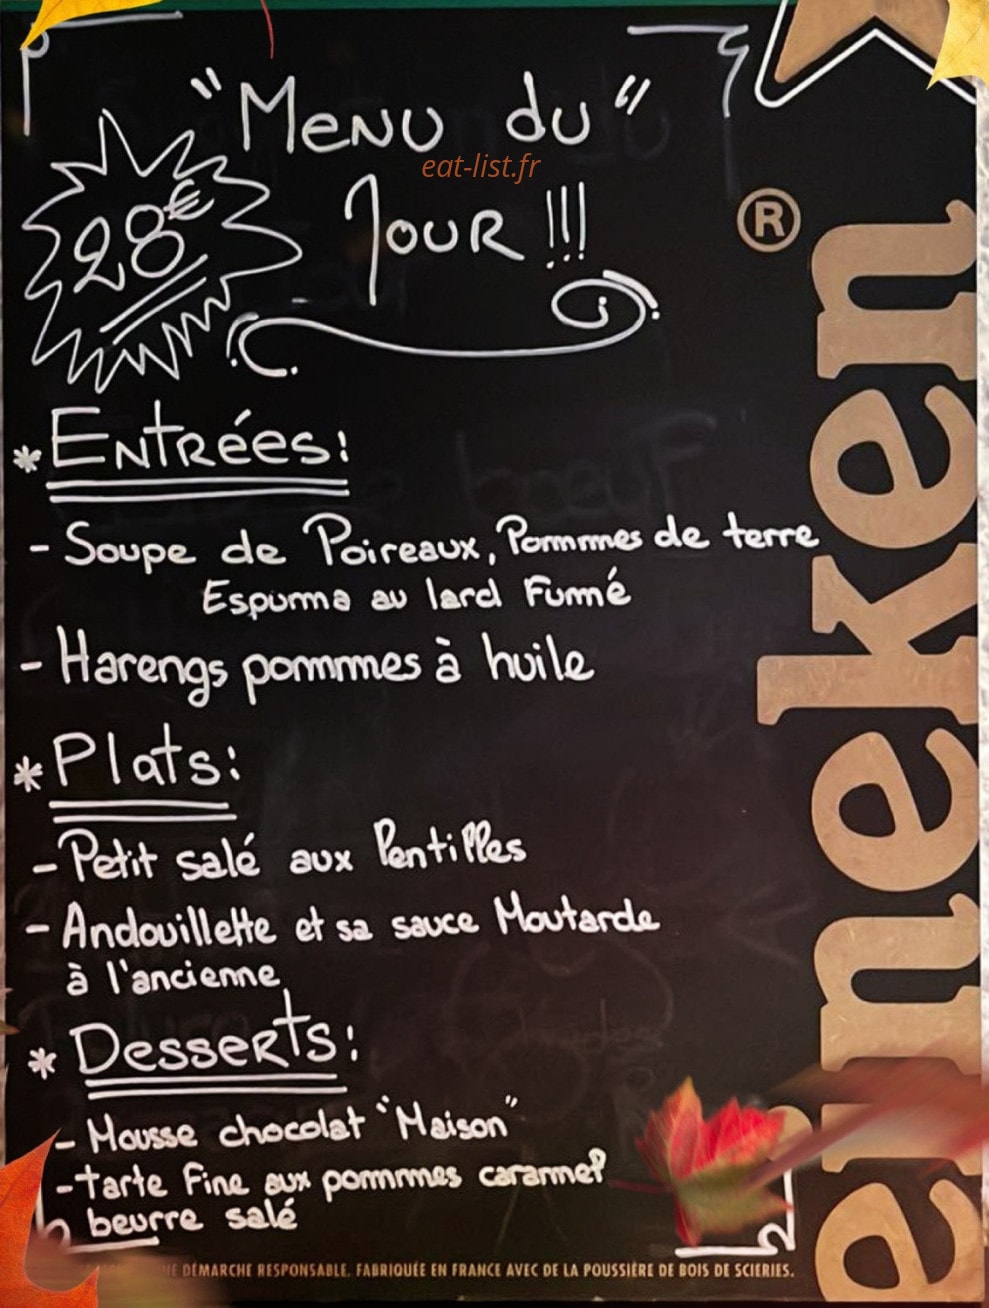 "Menu du"
eat-list.fr
28€
Jour !!!
®
* Entrées:
- Soupe de Poireaux, Pommes de terre
Espuma au lard Fumé
- Harengs pommes à huile
* Plats:
- Petit salé aux lentilles
- Andouillette et sa sauce Moutarde
à l'ancienne
* Desserts:
- Mousse chocolat "Maison"
- tarte Fine aux pommes caramel
beurre salé
eneken
DÉMARCHE RESPONSABLE. FABRIQUÉE EN FRANCE AVEC DE LA POUSSIÈRE DE BOIS DE SCIERIES.